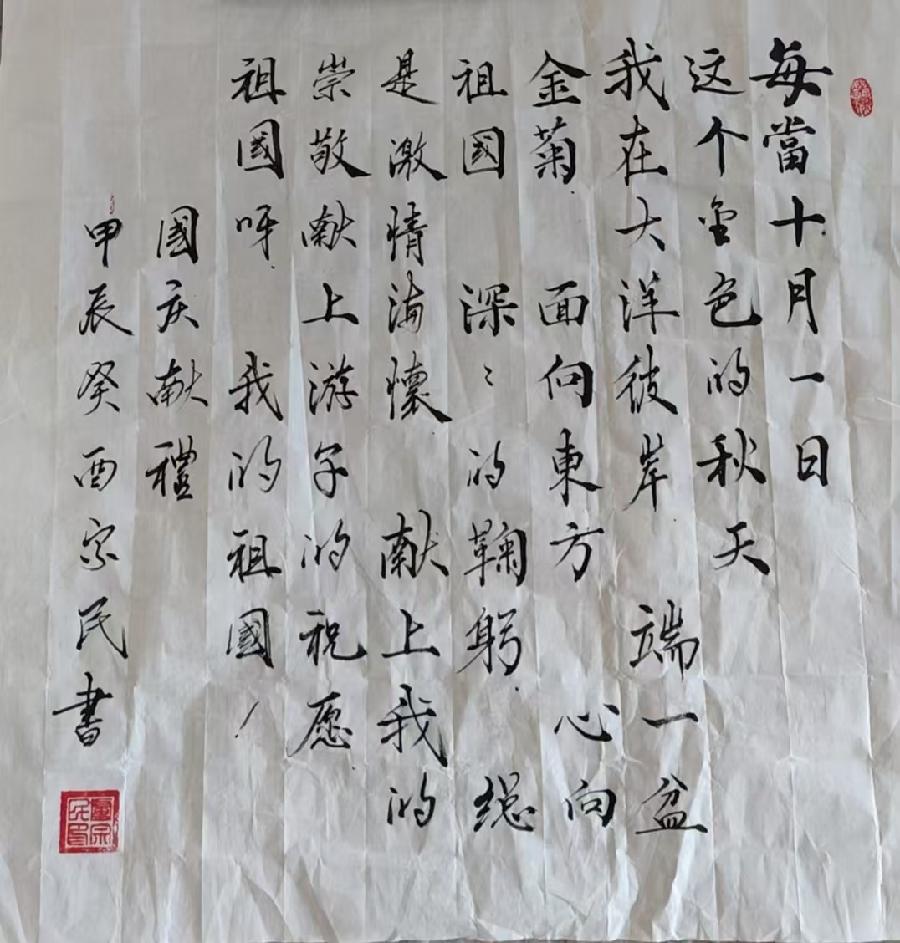 每當十月一日
这个金色的秋天
我在大洋彼岸 端一盆
金菊 面向東方 心向
祖國 深〻的鞠躬 總
是激情满懷 献上我的
崇敬献上游子的祝愿
祖國呀 我的祖國！
國庆献禮
甲辰癸酉宗民書